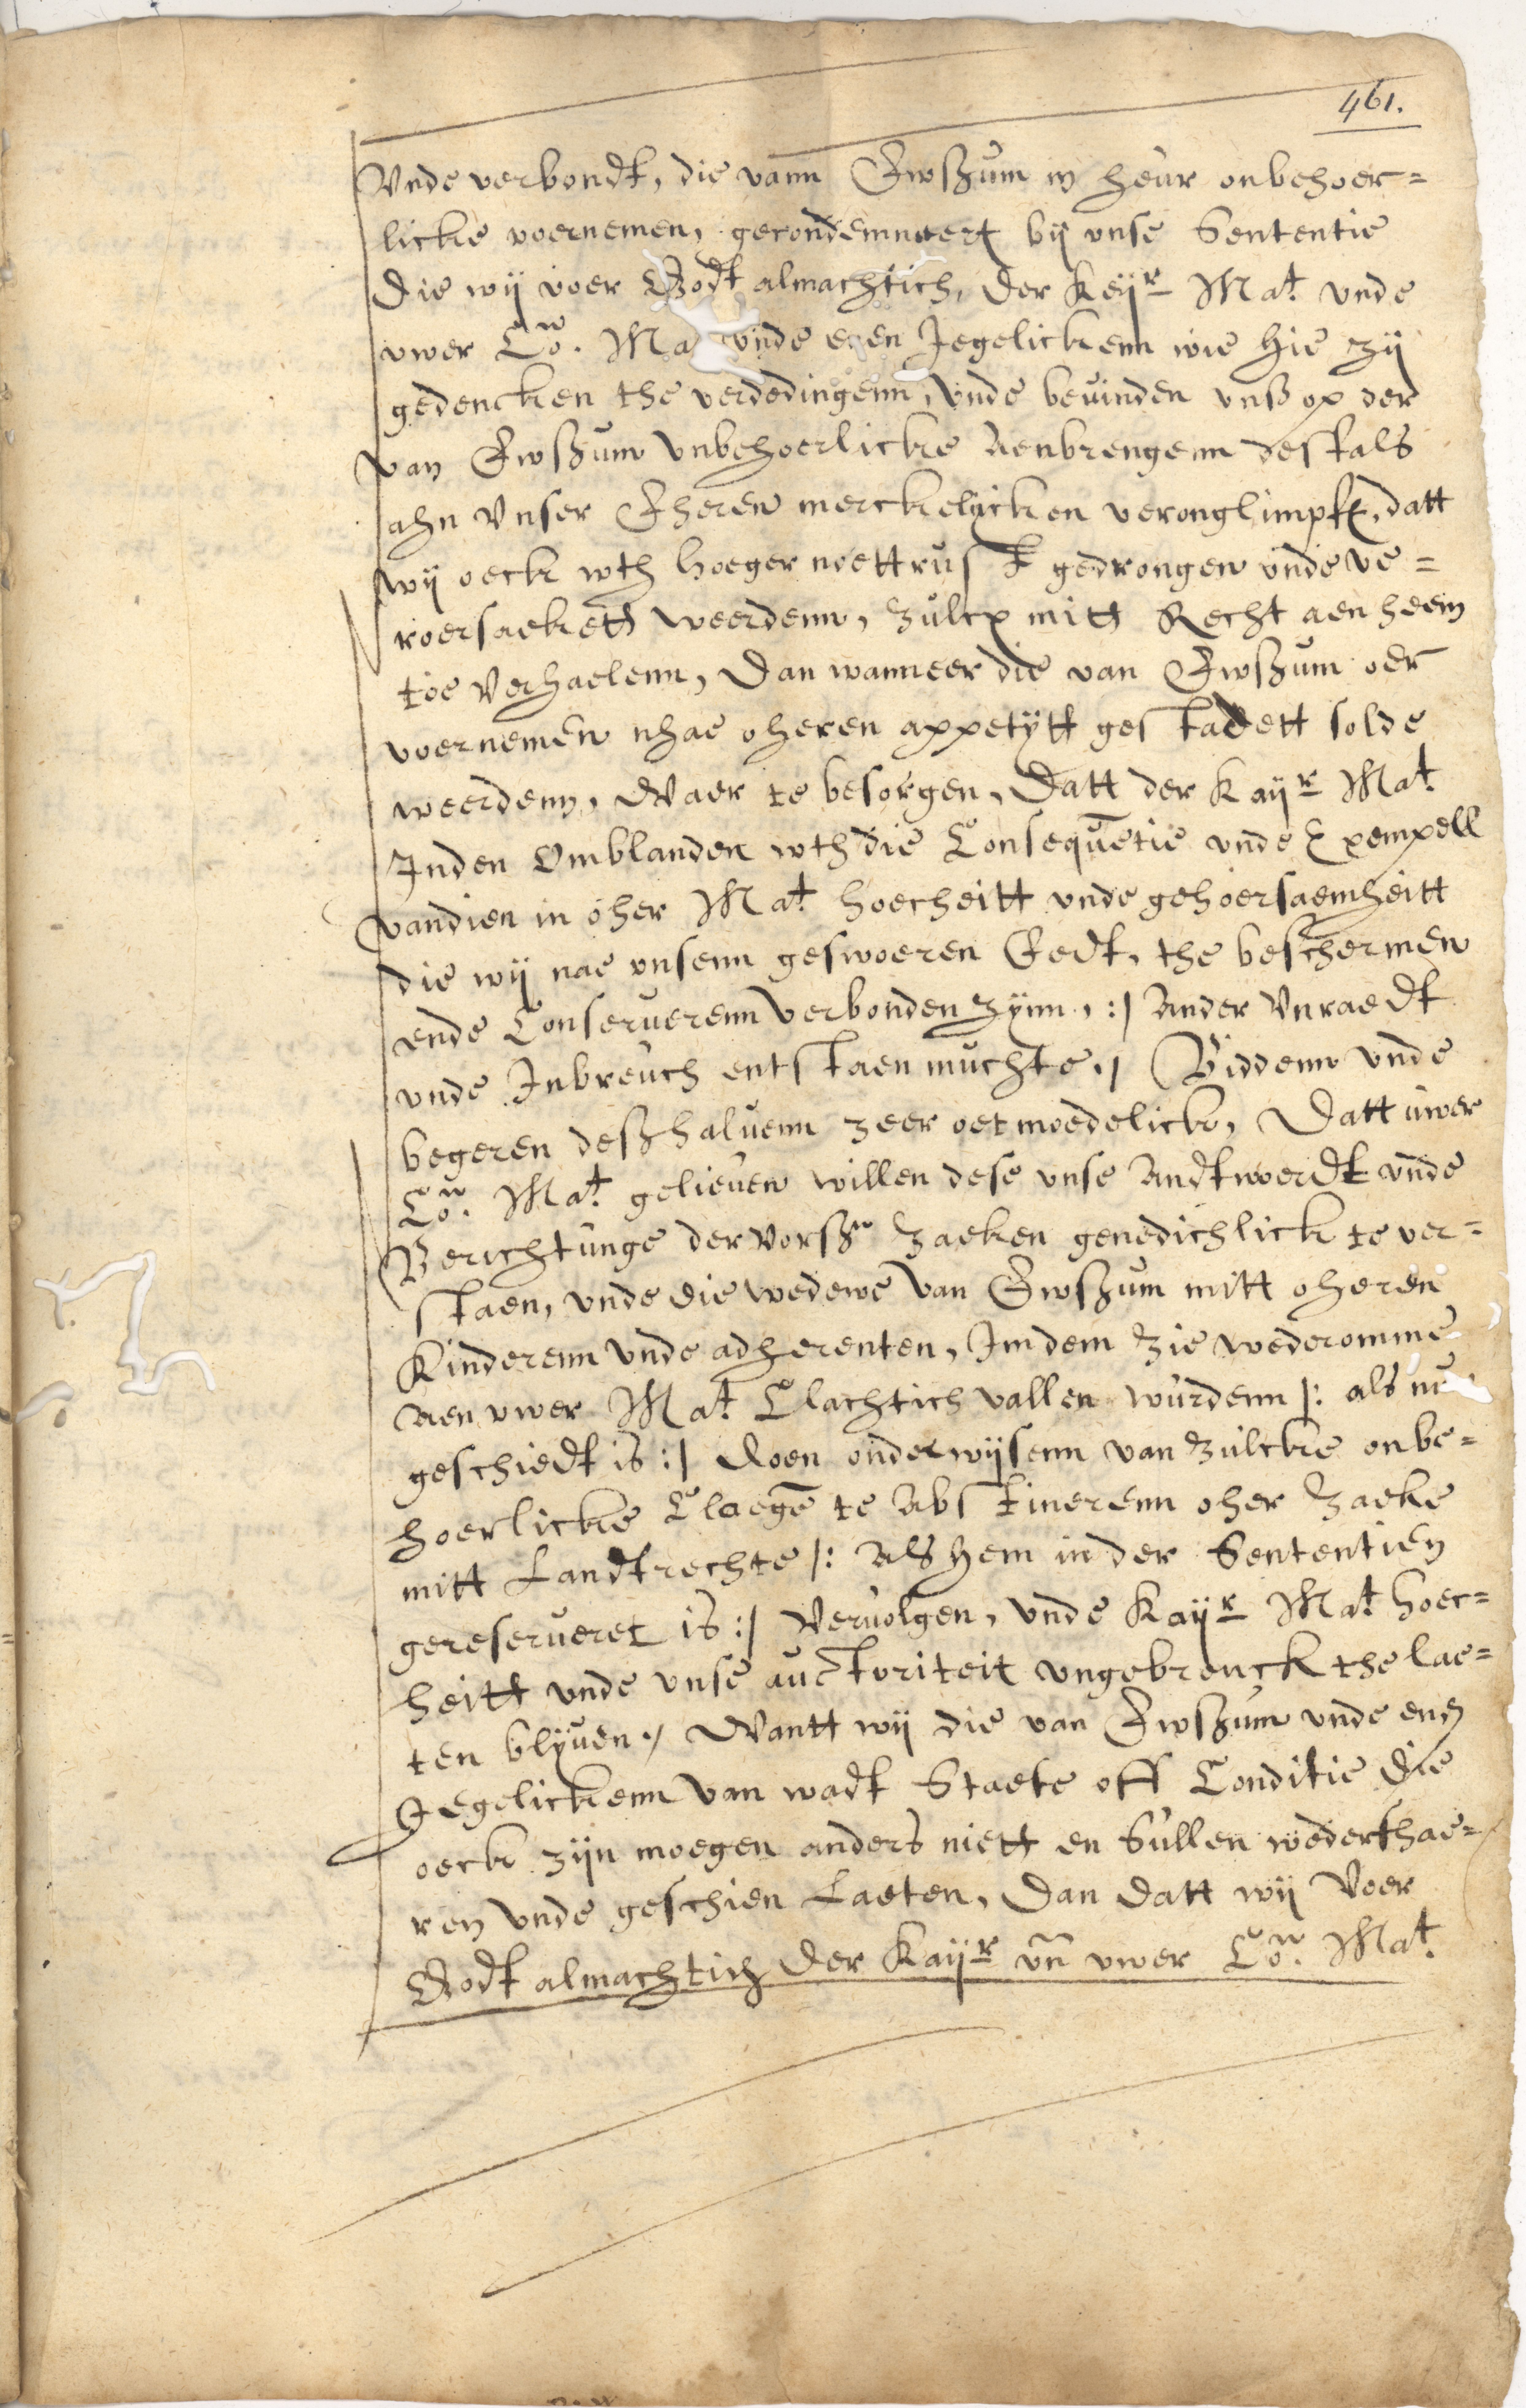 461.
Vnde verbondt, die vann Ewszum in heur onbehoer=
licke voernemen, gecondemneert bij vnse Sententie
Die wij voer Godt almachtich, der Keijr Mat vnde
vwer Con. Ma vnde enen Jegelickenn wie hie zij
gedencken the verdedingenn, vnde bevinden vnsz op der
van Ewszum vnbehoerlicke Aenbrengenn desfals
ahn vnser Eheren merckelicken veronglimpft, datt
wij oeck wth hoeger noettrufft gedrongen vnde ve=
roersaeketh weerdenn, zulcx mith Recht aen heem
toe verhaelenn, Dan wanneer die van Ewszum oer
voernemen nhae oheren appetijtt gestadett solde
weerdenn, Waer te besorgen, Datt der Kayr Mat
Inden Omblanden wth die Consequetie vnde Exempell
vandien in oher Mat hoecheitt vnde gehoersaemheitt
die wij nae vnsenn geswoeren Eedt, the beschermen
ende Conserverenn verbonden zijnn, :| Ander Vnraedt
vnde Inbreuch entstaen muchte. | Biddenn vnde
begeren deszhaluenn zeer oetmoedelick, Datt uwer
Con. Mat gelieuen willen dese vnse Andtwoerdt vnde
Berichtunge der vorszn zaeken genedichlick te ver=
staen, vnde die wedewe van Ewszum mitt oheren
Kinderenn vnde adherenten, Imdem zie wederomme
Aen vwer Mat Clachtich vallen wurdenn |: als nu
geschiedt is :| doen onderwijsenn van zulcke onbe=
hoerlicke Claege te Abstinerenn oher zaeke
mitt Landtrechte |: Als hem in der Sententien
gereserueret is :| veruolgen, vnde Kayr Mat hoec=
heitt vnde vnse auctoriteit vngebrenckt the lae=
ten blyuen. | Wantt wij die van Ewszum vnde enen
Jegelickenn van wadt Staete off Conditie die
oeck zijn moegen anders niett en sullen wederfhae=
ren vnde geschien Laeten, Dan datt wij voer
Godt almachtich der Kayr vn vwer Con. Mat